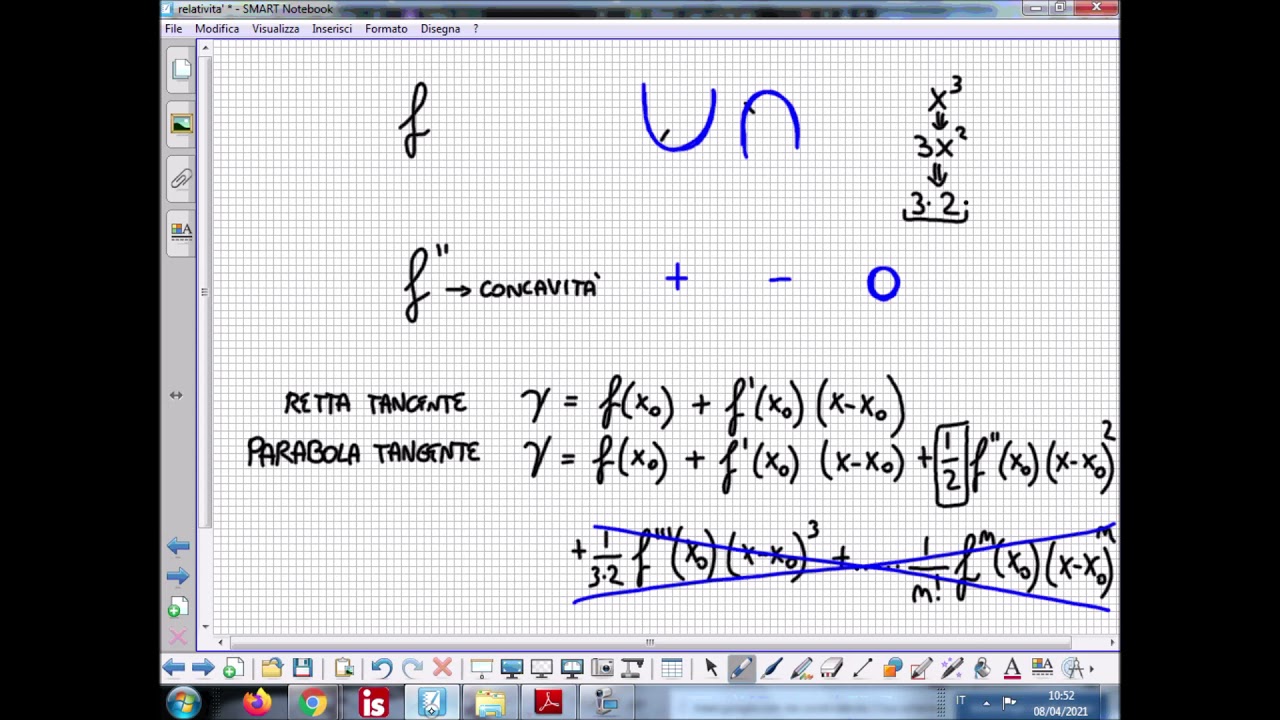 relatività * - SMART Notebook
File Modifica Visualizza Inserisci Formato Disegna ?
f
x³
3x²
3·2·
f'' → CONCAVITÀ + - 0
RETTA TANGENTE γ = f(x₀) + f'(x₀)(x-x₀)
PARABOLA TANGENTE γ = f(x₀) + f'(x₀) (x-x₀) + 1/2 f''(x₀)(x-x₀)²
+ 1/3·2 f'''(x₀)(x-x₀)³ + ..... 1/m! fᵐ(x₀)(x-x₀)ᵐ
IT
10:52
08/04/2021